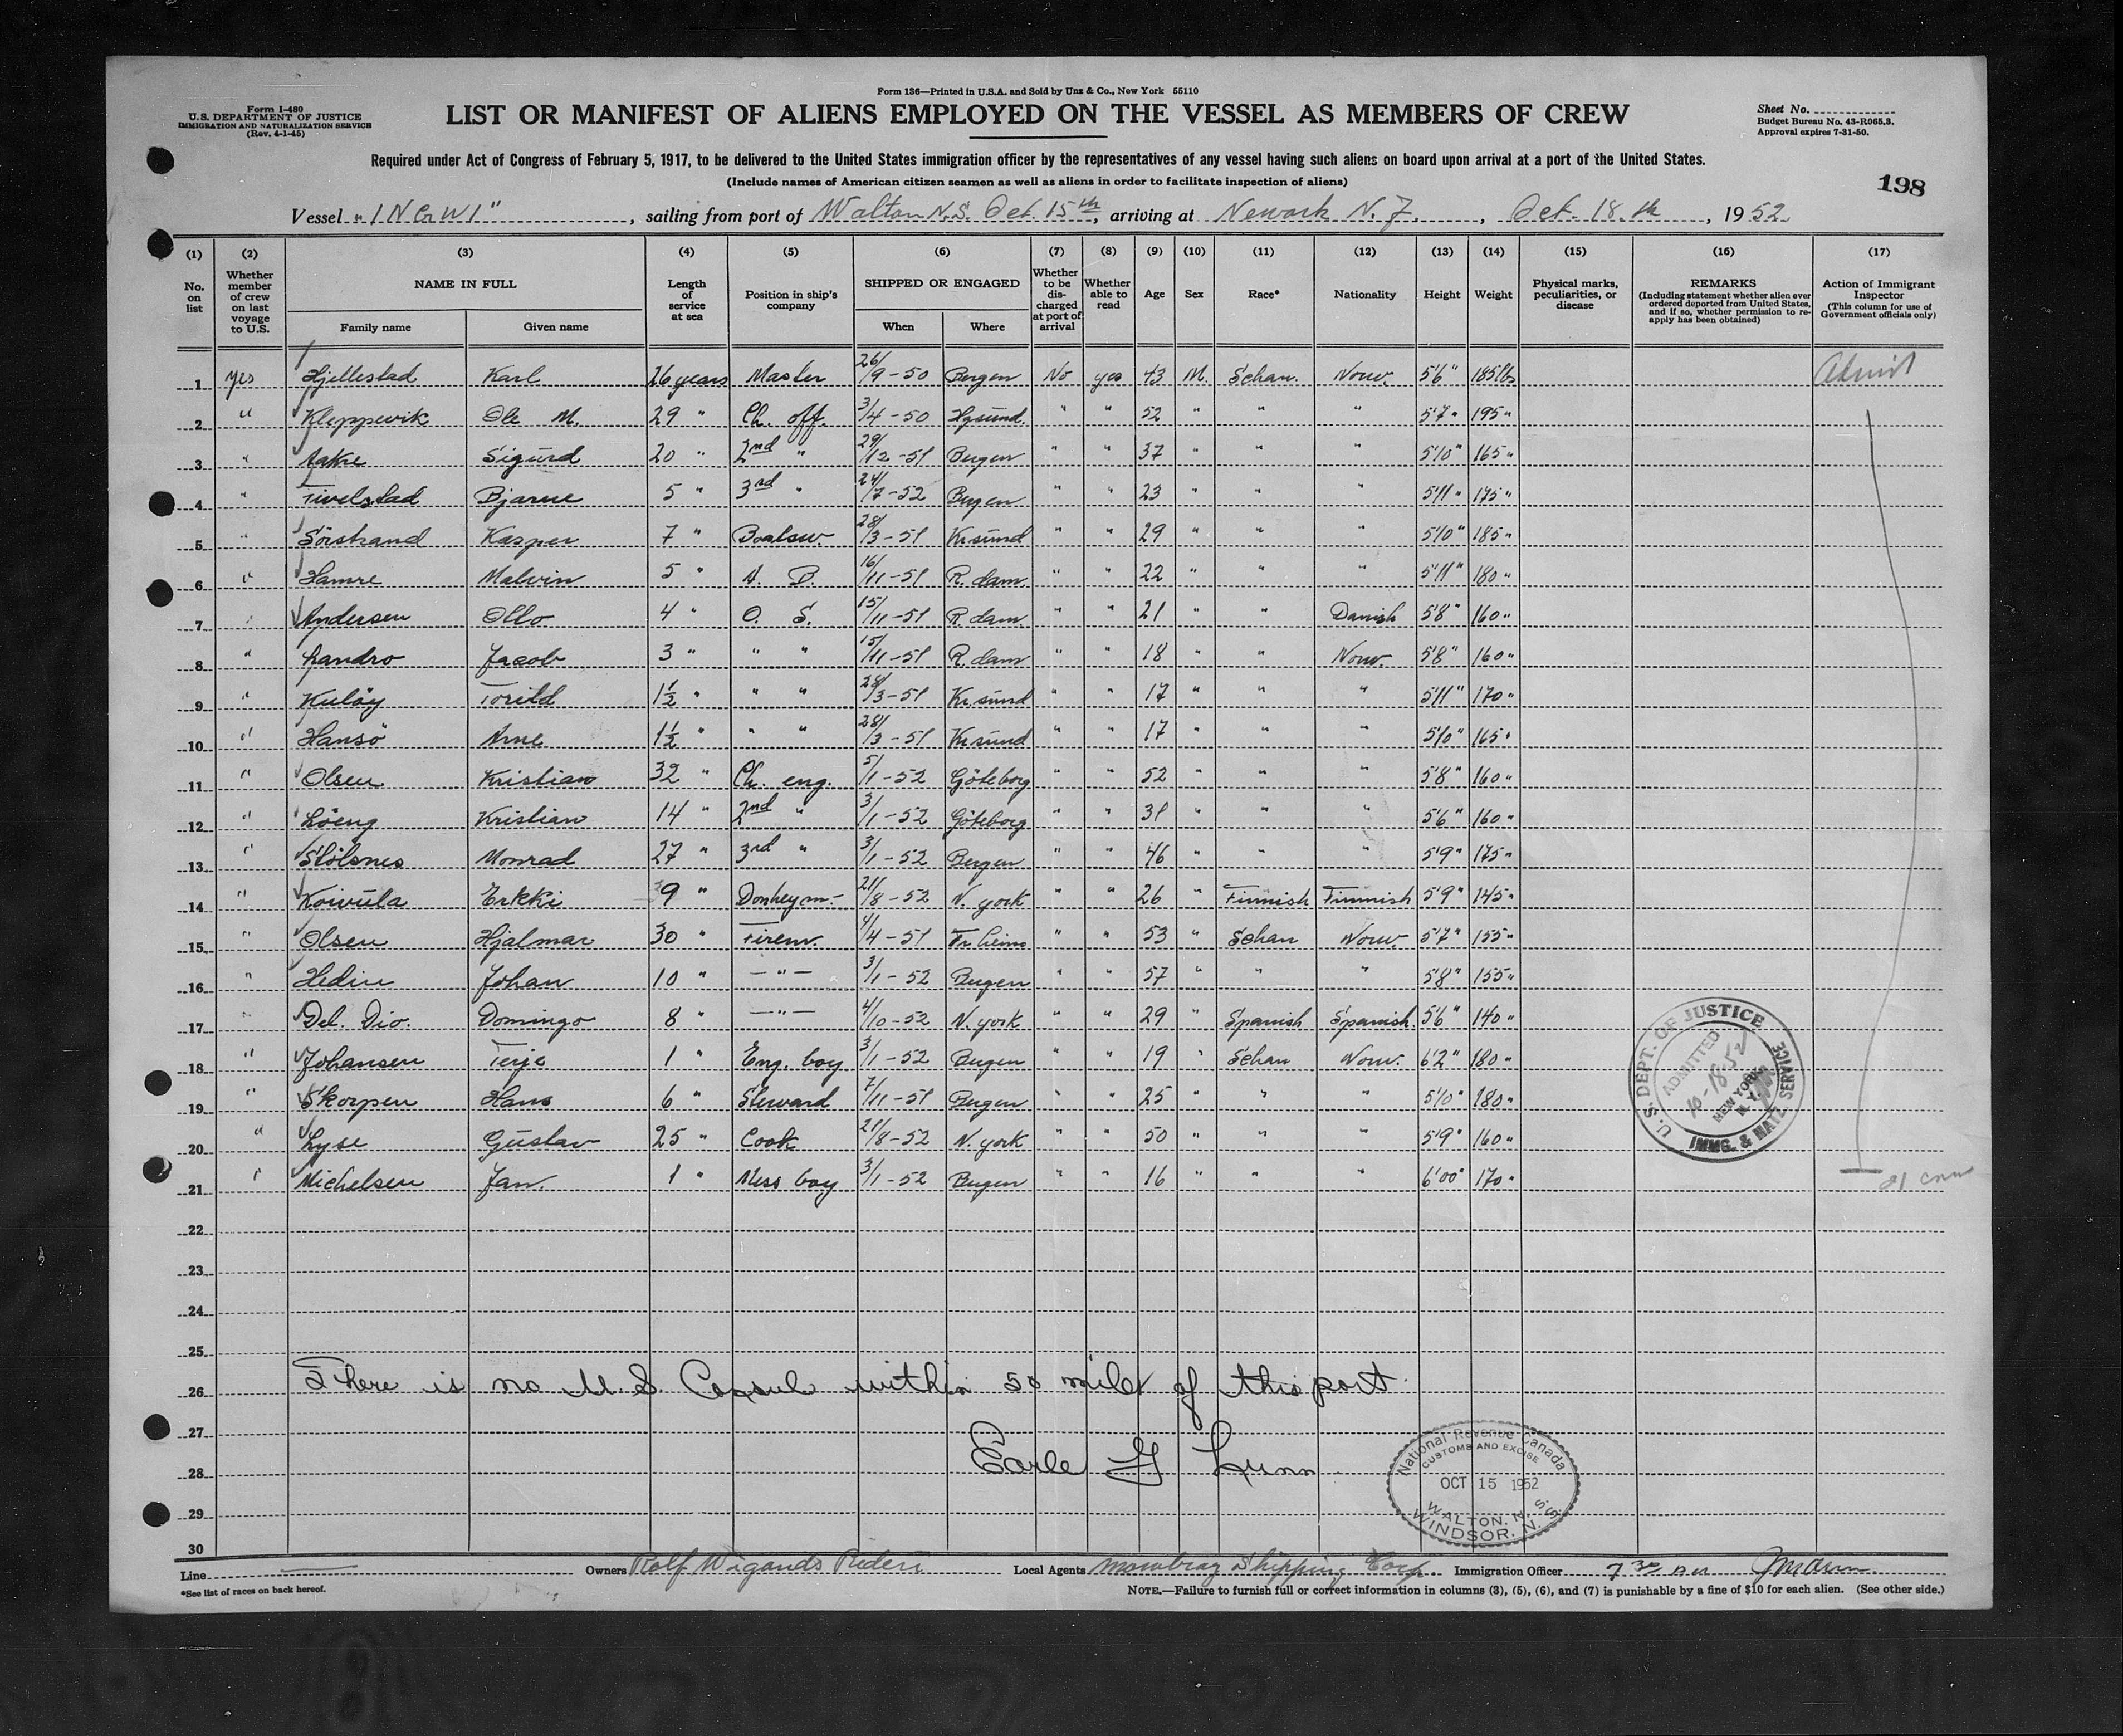 Form I-480
U.S. DEPARTMENT OF JUSTICE
IMMIGRATION AND NATURALIZATION SERVICE
(Rev. 4-1-45)
Form 136—Printed in U.S.A. and Sold by Unz & Co., New York 55110
LIST OR MANIFEST OF ALIENS EMPLOYED ON THE VESSEL AS MEMBERS OF CREW
Sheet No.
Budget Bureau No. 43-R065.3.
Approval expires 7-31-50.
Required under Act of Congress of February 5, 1917, to be delivered to the United States immigration officer by the representatives of any vessel having such aliens on board upon arrival at a port of the United States.
(Include names of American citizen seamen as well as aliens in order to facilitate inspection of aliens)
198
Vessel "INGWI", sailing from port of Walton N.S. Oct. 15th, arriving at Newark N.J., Oct. 18th, 1952
(1) (2) (3) (4) (5) (6) (7) (8) (9) (10) (11) (12) (13) (14) (15) (16) (17)
No. on list
Whether member of crew on last voyage to U.S.
NAME IN FULL
Family name Given name
Length of service at sea
Position in ship's company
SHIPPED OR ENGAGED
When Where
Whether to be discharged at port of arrival
Whether able to read
Age
Sex
Race*
Nationality
Height
Weight
Physical marks, peculiarities, or disease
REMARKS
(Including statement whether alien ever ordered deported from United States, and if so, whether permission to re-apply has been obtained)
Action of Immigrant Inspector
(This column for use of Government officials only)
1 yes Hjellestad Karl 26 years Master 26/9-50 Bergen No yes 43 M. Schan. Norw. 5'6" 185 lbs Admit
2 " Kleppevik Ole M. 29 " Ch. off. 3/4-50 Hgsund. " " 52 " " " 5'7" 195 "
3 " Aakre Sigurd 20 " 2nd " 29/12-51 Bergen " " 37 " " " 5'10" 165 "
4 " Tivelstad Bjarne 5 " 3rd " 24/7-52 Bergen " " 23 " " " 5'11" 175 "
5 " Sörstrand Kasper 7 " Boatsw. 28/3-51 Kr.sund " " 29 " " " 5'10" 185 "
6 " Hamre Malvin 5 " A. B. 16/11-51 R.dam. " " 22 " " " 5'11" 180 "
7 " Andersen Otto 4 " O. S. 15/11-51 R.dam. " " 21 " " Danish 5'8" 160 "
8 " Landro Jacob 3 " " " 15/11-51 R.dam " " 18 " " Norw. 5'8" 160 "
9 " Kulöy Torild 1½ " " " 28/3-51 Kr.sund " " 17 " " " 5'11" 170 "
10 " Hansö Arne 1½ " " " 28/3-51 Kr.sund " " 17 " " " 5'10" 165 "
11 " Olsen Kristian 32 " Ch. eng. 5/1-52 Göteborg " " 52 " " " 5'8" 160 "
12 " Löeng Kristian 14 " 2nd " 3/1-52 Göteborg " " 31 " " " 5'6" 160 "
13 " Stölsnes Monrad 27 " 3rd " 3/1-52 Bergen " " 46 " " " 5'9" 175 "
14 " Koivula Erkki 9 " Donkeym. 21/8-52 N.york " " 26 " Finnish Finnish 5'9" 145 "
15 " Olsen Hjalmar 30 " Firem. 4/4-51 Tr.heim " " 53 " Schan Norw. 5'7" 155 "
16 " Hedin Johan 10 " —"— 3/1-52 Bergen " " 57 " " " 5'8" 155 "
17 " Del. Dio. Domingo 8 " —"— 4/10-52 N.york " " 29 " Spanish Spanish 5'6" 140 "
18 " Johansen Terje 1 " Eng. boy 3/1-52 Bergen " " 19 " Schan Norw. 6'2" 180 "
19 " Skorpen Hans 6 " Steward 7/11-51 Bergen " " 25 " " " 5'10" 180 "
20 " Lyse Gustav 25 " Cook 21/8-52 N.york " " 50 " " " 5'9" 160 "
21 " Michelsen Jan. 1 " Mess boy 3/1-52 Bergen " " 16 " " " 6'00" 170 "
21 crew
U.S. DEPT. OF JUSTICE
ADMITTED
10-18-52
NEW YORK, N.Y.
IMMG. & NATZ. SERVICE
22
23
24
25
26 There is no U.S. Consul within 50 miles of this port.
27
28 Earle G Lunn
29
30
National Revenue Canada
CUSTOMS AND EXCISE
OCT 15 1952
WALTON, N.S.
WINDSOR, N.S.
Line Owners Rolf Wigands Rederi Local Agents Mowbray Shipping Corp. Immigration Officer 7 30
*See list of races on back hereof.
NOTE.—Failure to furnish full or correct information in columns (3), (5), (6), and (7) is punishable by a fine of $10 for each alien. (See other side.)